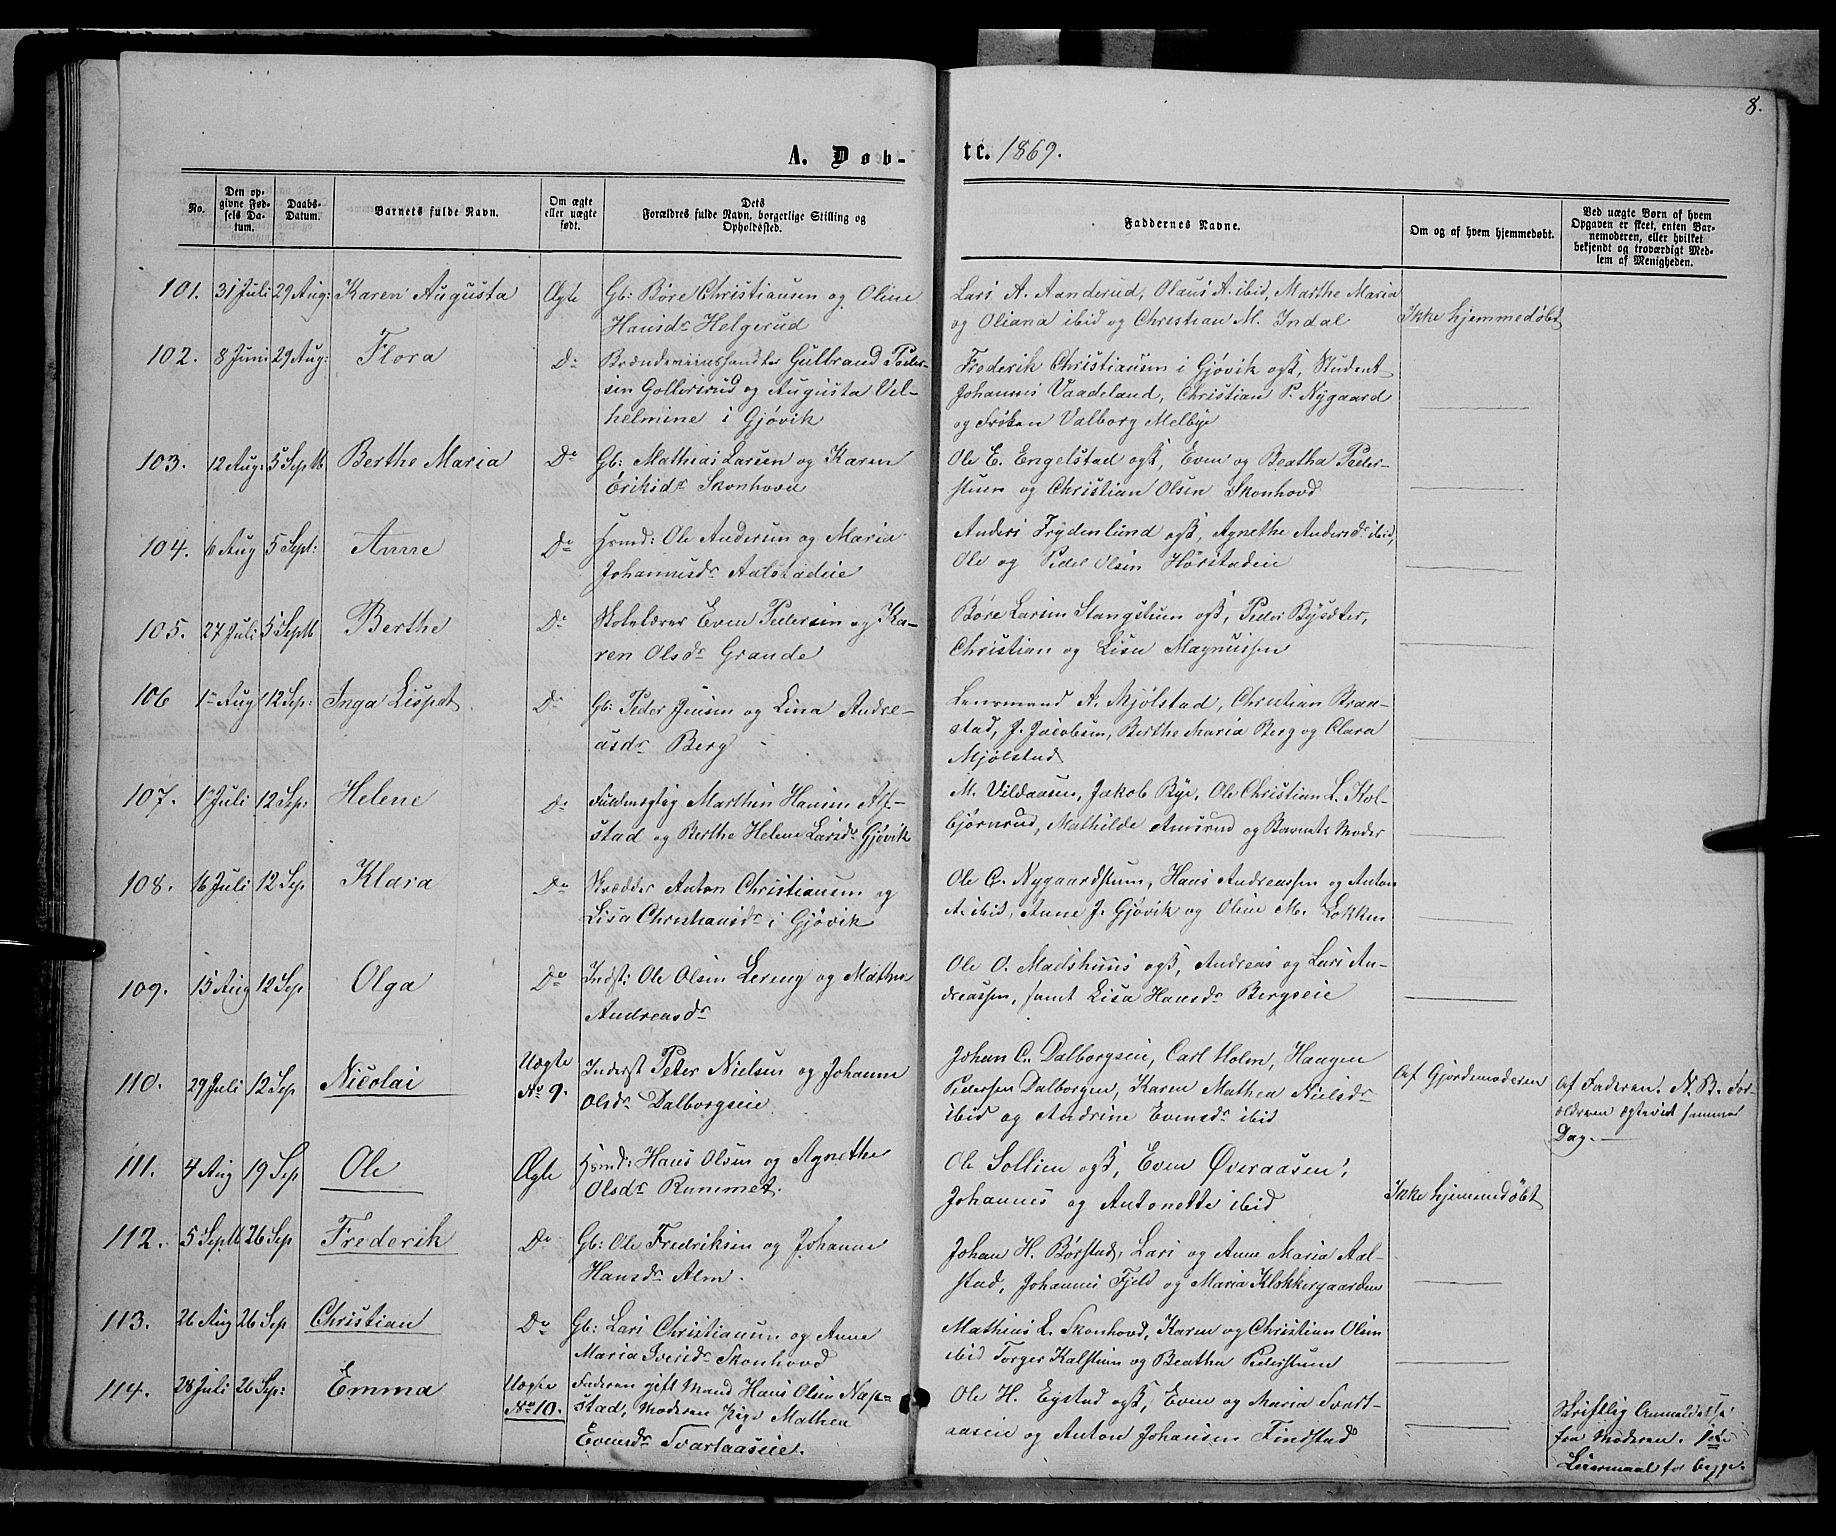 8.
A. Døb-
tc. 1869.
No.
Den op-
givne Fød-
sels Da-
tum.
Daabs-
Datum.
Barnets fulde Navn.
Om ægte
eller uægte
født.
Dets
Forældres fulde Navn, borgerlige Stilling og
Opholdssted.
Faddernes Navne.
Om og af hvem hjemmedøbt.
Ved uægte Børn af hvem
Opgaven er skeet, enten Bar-
nemoderen, eller hvilket
bekjendt og troværdigt Med-
lem af Menigheden.
101. 31 Juli 29 Aug: Karen Augusta Ægte Gb: Børe Christiansen og Oline
Hansdr Helgerud
Lars A. Aanderud, Olaus A. ibid, Marthe Maria
og Oliana ibid og Christian M. Indal
Ikke hjemmedøbt
102. 8 Juni 29 Aug: Flora Do Brændeviinshandler Gulbrand Peder-
sen Gollersrud og Augusta Vil-
helmine i Gjøvik
Frederik Christiansen i Gjøvik ogs, Student
Johannes Vaadeland, Christian P. Nygaard
og Frøken Valborg Melbye
103. 12 Aug: 5 Septb Berthe Maria Do Gb: Mathias Larsen og Karen
Eriksdr Skonhovd
Ole E. Engelstad ogs, Even og Beatha Peder-
stuen og Christian Olsen Skonhovd
104. 6 Aug 5 Sept: Anne Do Hsmd: Ole Andersen og Maria
Johannesdr Aalstadeie
Anders Frydenlund ogs, Agnethe Andersdr ibid,
Ole og Peder Olsen Hørstadeie
105. 27 Juli 5 Septb Berthe Do Skolelærer Even Pedersen og Ka-
ren Olsdr Grande
Børe Larsen Stangstuen ogs, Peder Bysæter,
Christian og Lisa Magnussen
106 1ste Aug 12 Sep: Inga Lispet Do Gb: Peder Jensen og Lina Andre-
asdr Berg
Lensmand A. Mjølstad, Christian Braa-
stad, J. Jacobsen, Berthe Maria Berg og Clara
Mjølstad
107. 1ste Juli 12 Sep: Helene Do Fuldmægtig Marthin Hansen Alf-
stad og Berthe Helene Larsdr Gjøvik
M. Vildaasen, Jakob Bye, Ole Christian L. Kol-
bjørnrud, Mathilde Amsrud og Barnets Moder
108. 16 Juli 12 Sep Klara Do Skrædder Anton Christiansen og
Lisa Christiansdr i Gjøvik
Ole C. Nygaardstuen, Hans Andreassen og Anton
A. ibid, Anne J. Gjøvik og Oline M. Løkken
109. 15 Aug 12 Sep Olga Do Inds: Ole Olsen Lereng og Mathea
Andreasdr
Ole O. Madshuus ogs, Andreas og Lars An-
dreassen, samt Lisa Hansdr Bergseie
110. 29 Juli 12 Sep Nicolai Uægte
No 9.
Inderst Peter Nielsen og Johanne
Olsdr Dalborgseie
Johan C. Dalborgseie, Carl Holm, Haagen
Pedersen Dalborgen, Karen Mathea Nielsdr
ibid og Andrine Evensdr ibid
Af Gjordemoderen
Af Faderen. N.B. For-
ældrene ægteviet samme
Dag.
111. 4 Aug 19 Sep Ole Ægte Hsmd: Hans Olsen og Agnethe
Olsdr Rummet.
Ole Sollien ogs, Even Øveraasen,
Johannes og Antonette ibid
Ikke hjemmedøbt
112. 5 Septb 26 Sep Frederik Do Gb: Ole Fredriksen og Johanne
Hansdr Alm.
Johan H. Børstad, Lars og Anne Maria Aal-
stad, Johannes Fjeld og Maria Klokkergaarden
113. 26 Aug 26 Sep Christian Do Gb: Lars Christiansen og Anne
Maria Iversdr Skonhovd
Mathias L. Skonhovd, Karen og Christian Olsen
ibid Torger Kalstuen og Beatha Pederstuen
114. 28 Juli 26 Sep: Emma Uægte
No 10.
Faderen gift Mand Hans Olsen Næp-
stad, Moderen Pige Mathea
Evensdr Svartaaseie.
Ole H. Eystad ogs, Even og Maria Svart-
aaseie og Anton Johansen Findstad
Skriftlig Anmeldelse
fra Moderen. 1ste
Leiermaal for begge.